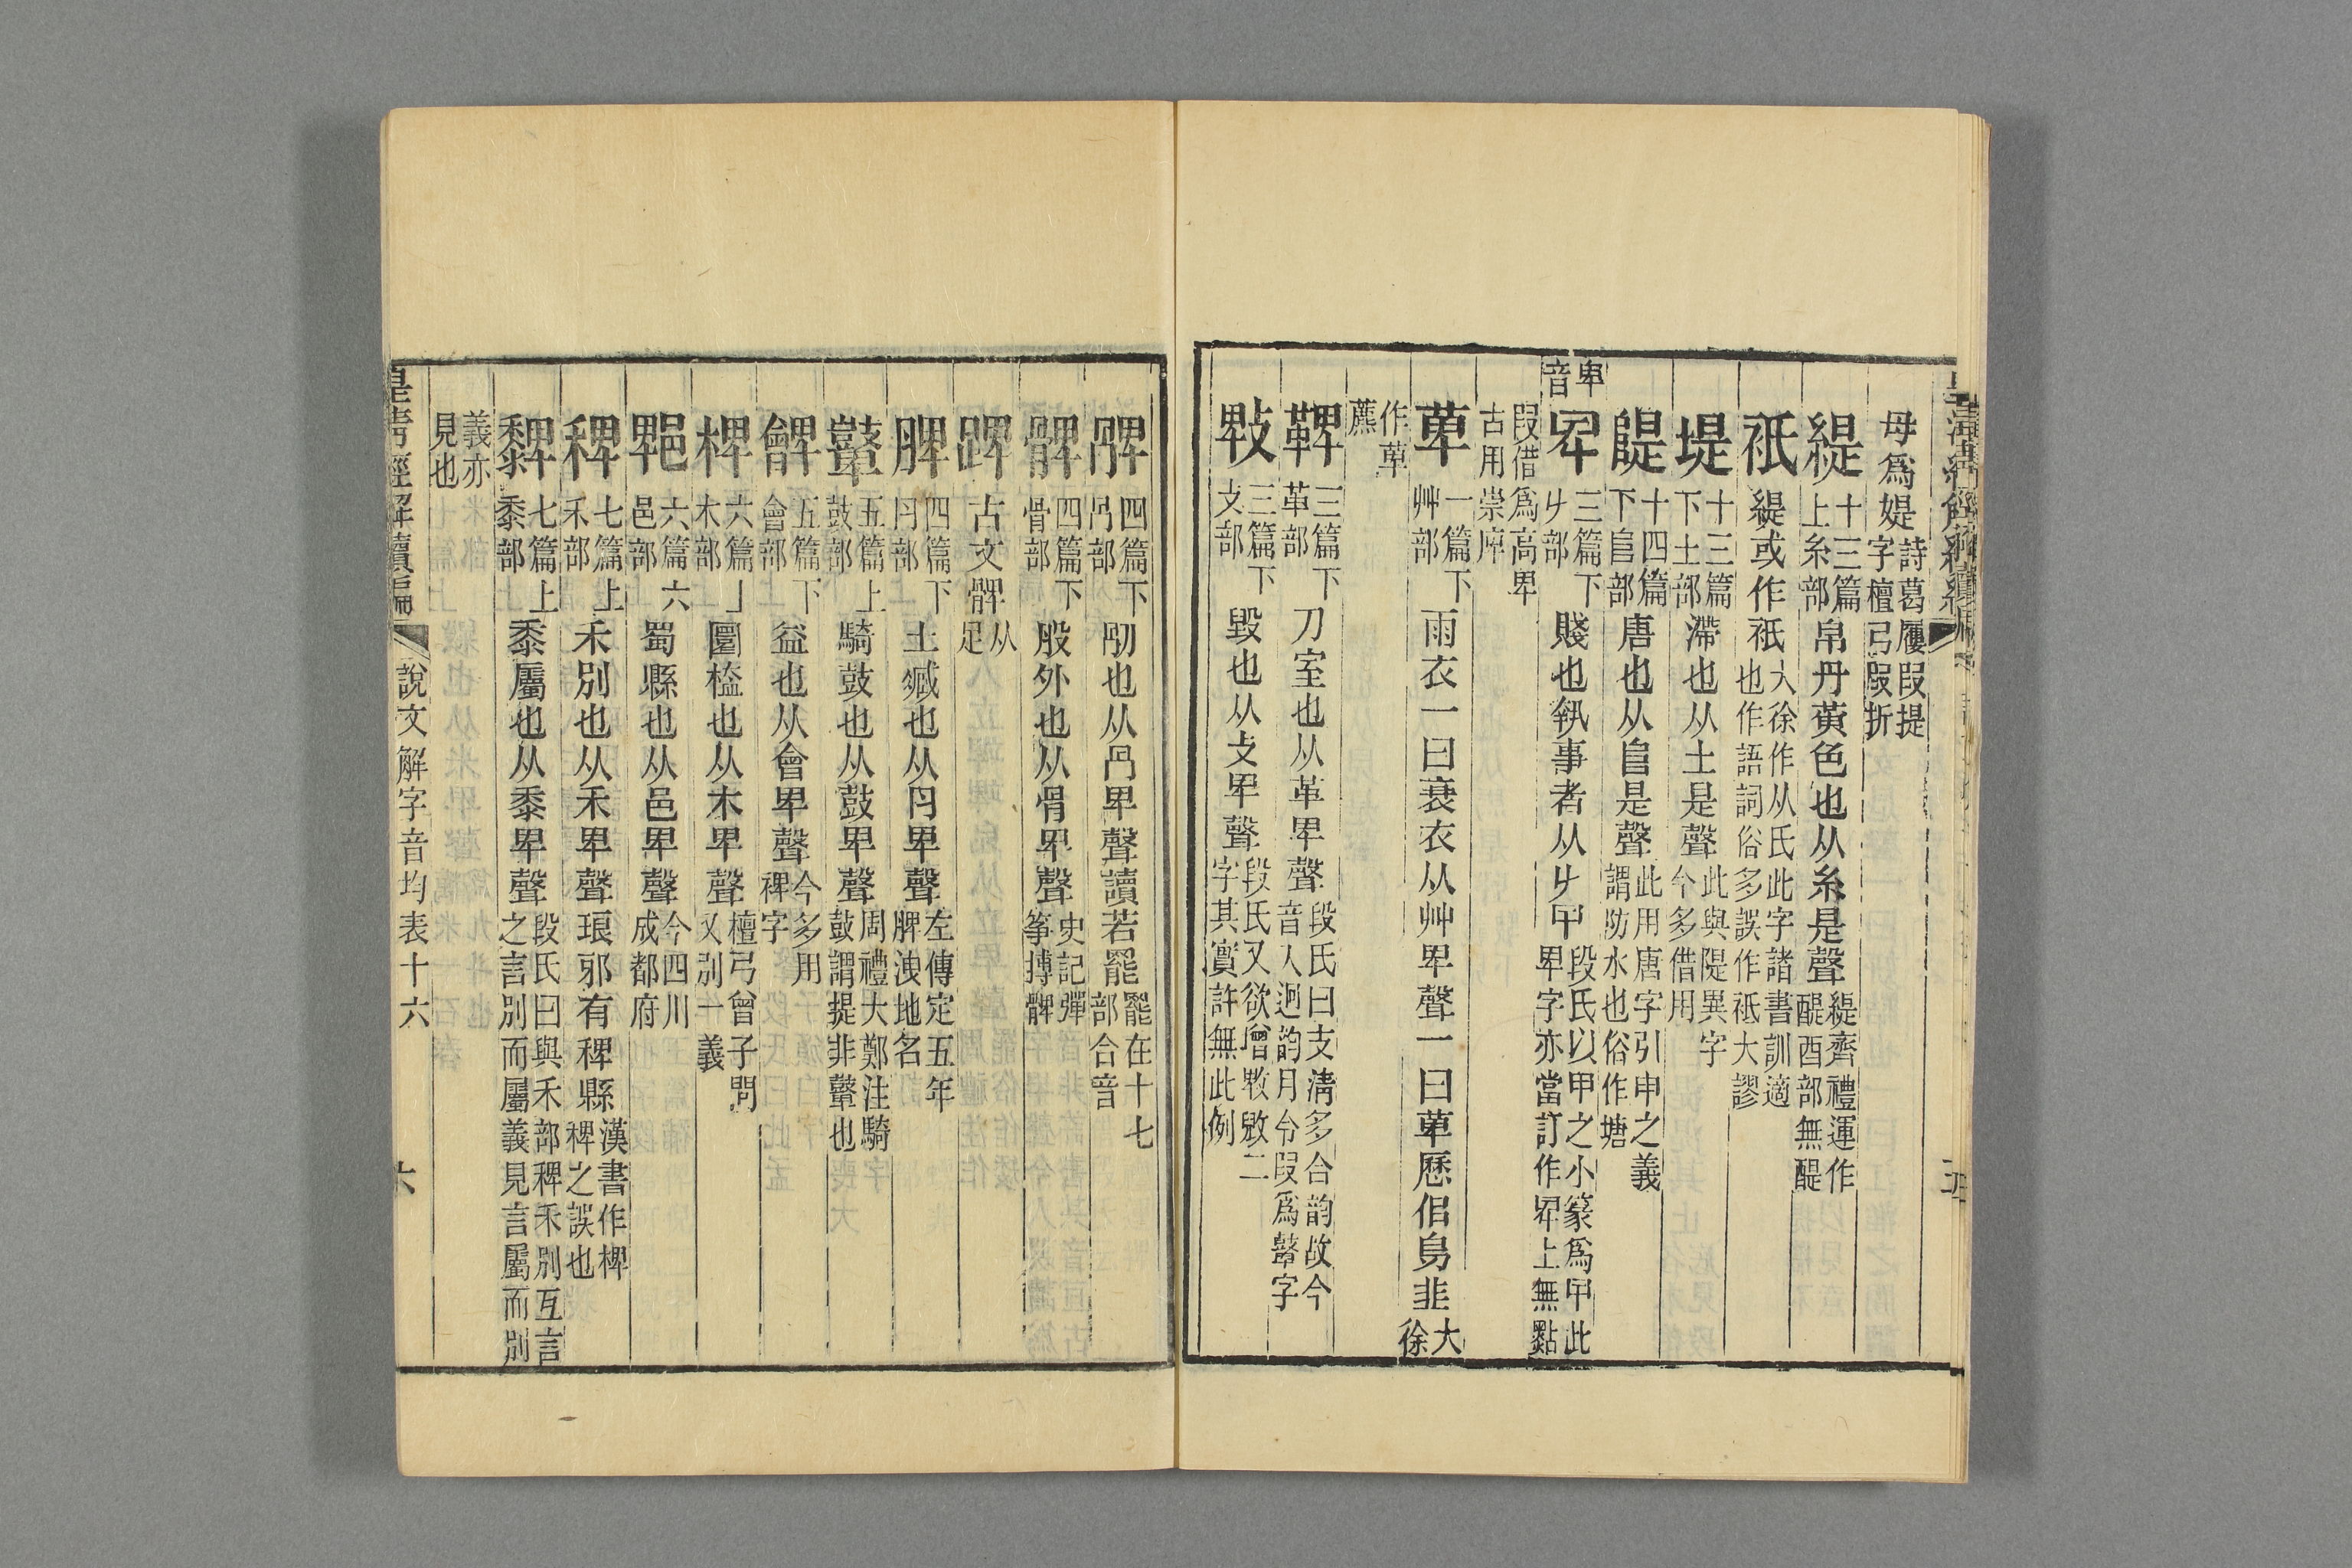 母爲媞詩葛屨叚提字檀弓叚折
緹十三篇上糸部帛丹黃色也从糸是聲緹齊禮運作醍酉部無醍
衹緹或作衹大徐作从氏此字諸書訓適也作語詞俗多誤作祇大謬
堤十三篇下土部滯也从土是聲此與隄異字今多借用
隄十四篇下𨸏部唐也从𨸏是聲此用唐字引申之義謂防水也俗作塘
卑音
卑三篇下𠂇部賤也執事者从𠂇甲段氏以甲之小篆爲甲此卑字亦當訂作卑上無點
叚借爲高卑古用崇庳
萆一篇下艸部雨衣一曰衰衣从艸卑聲一曰萆歷佀舄韭大徐
作萆藨
鞞三篇下革部刀室也从革卑聲段氏曰支淸多合韵故今音入迥韵月令叚爲鼙字
𢻹三篇下攴部毀也从攴卑聲段氏又欲增𢻹敗二字其實許無此例
𠧅四篇下冎部別也从冎卑聲讀若罷罷在十七部合音
髀四篇下骨部股外也从骨卑聲史記彈筝搏髀
踔古文髀从足
脾四篇下肉部土臧也从肉卑聲左傳定五年脾洩地名
鼙五篇上鼓部騎鼓也从鼓卑聲周禮大鄭注騎鼓謂提非鼙也
䡟五篇下會部益也从會卑聲今多用裨字
椑六篇上木部圜榼也从木卑聲檀弓曾子問又別一義
郫六篇六邑部蜀縣也从邑卑聲今四川成都府
稗七篇上禾部禾別也从禾卑聲琅邪有稗縣漢書作椑稗之誤也
䵗七篇上黍部黍屬也从黍卑聲段氏曰與禾部稗禾別互言之言別而屬義見言屬而別
義亦見也
皇淸經解續編
說文解字音均表十六
六